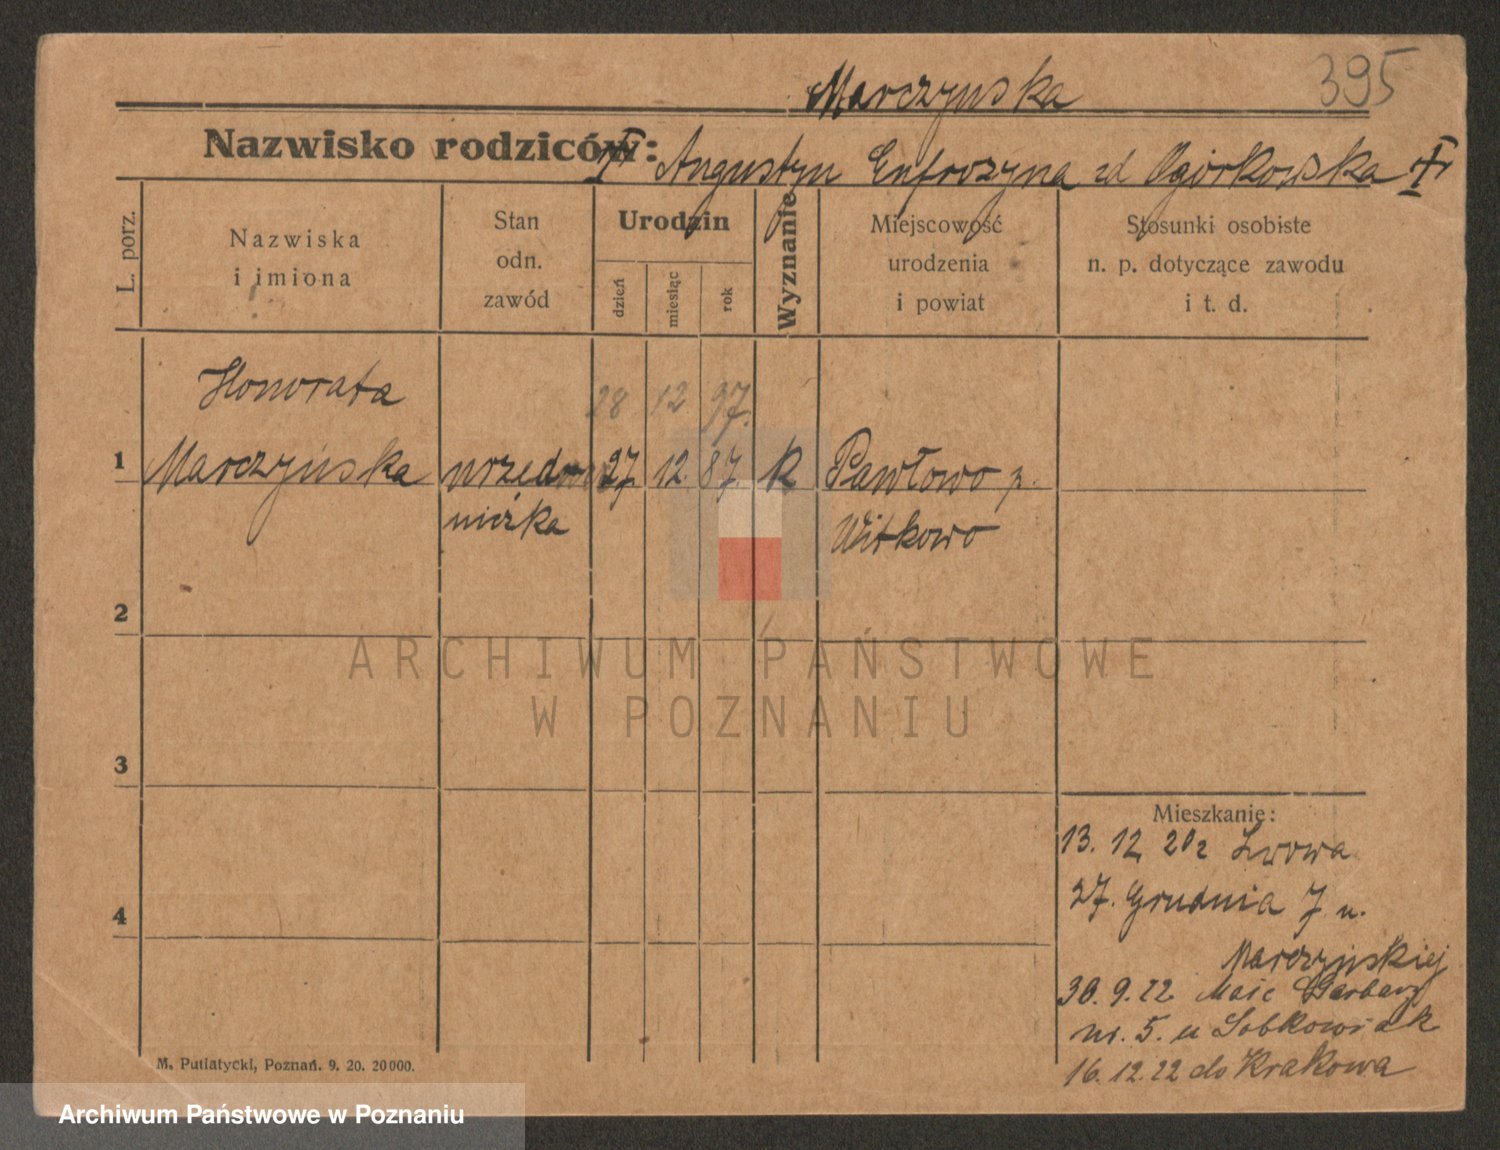 395
Marczynska
Nazwisko rodziców: Augustyn Eufrozyna zd Ogórkowska
L. porz.
Nazwiska
i imiona
Stan
odn.
zawód
Urodzin
dzień
miesiąc
rok
Wyznanie
Miejscowość
urodzenia
i powiat
Stosunki osobiste
n. p. dotyczące zawodu
i t. d.
Honorata
28 12 97.
1 Marczyńska urzędow 27. 12. 87. k Pawłowo p.
niczka Witkowo
2
3
4
Mieszkanie:
13. 12 20 z Lwowa
27. Grudnia 7 u.
Marczyńskiej
30. 9. 22 Małe Garbary
nr. 5. u Sobkowiak
16. 12. 22 do Krakowa
M. Putiatycki, Poznań. 9. 20. 20000.
ARCHIWUM PAŃSTWOWE
W POZNANIU
Archiwum Państwowe w Poznaniu